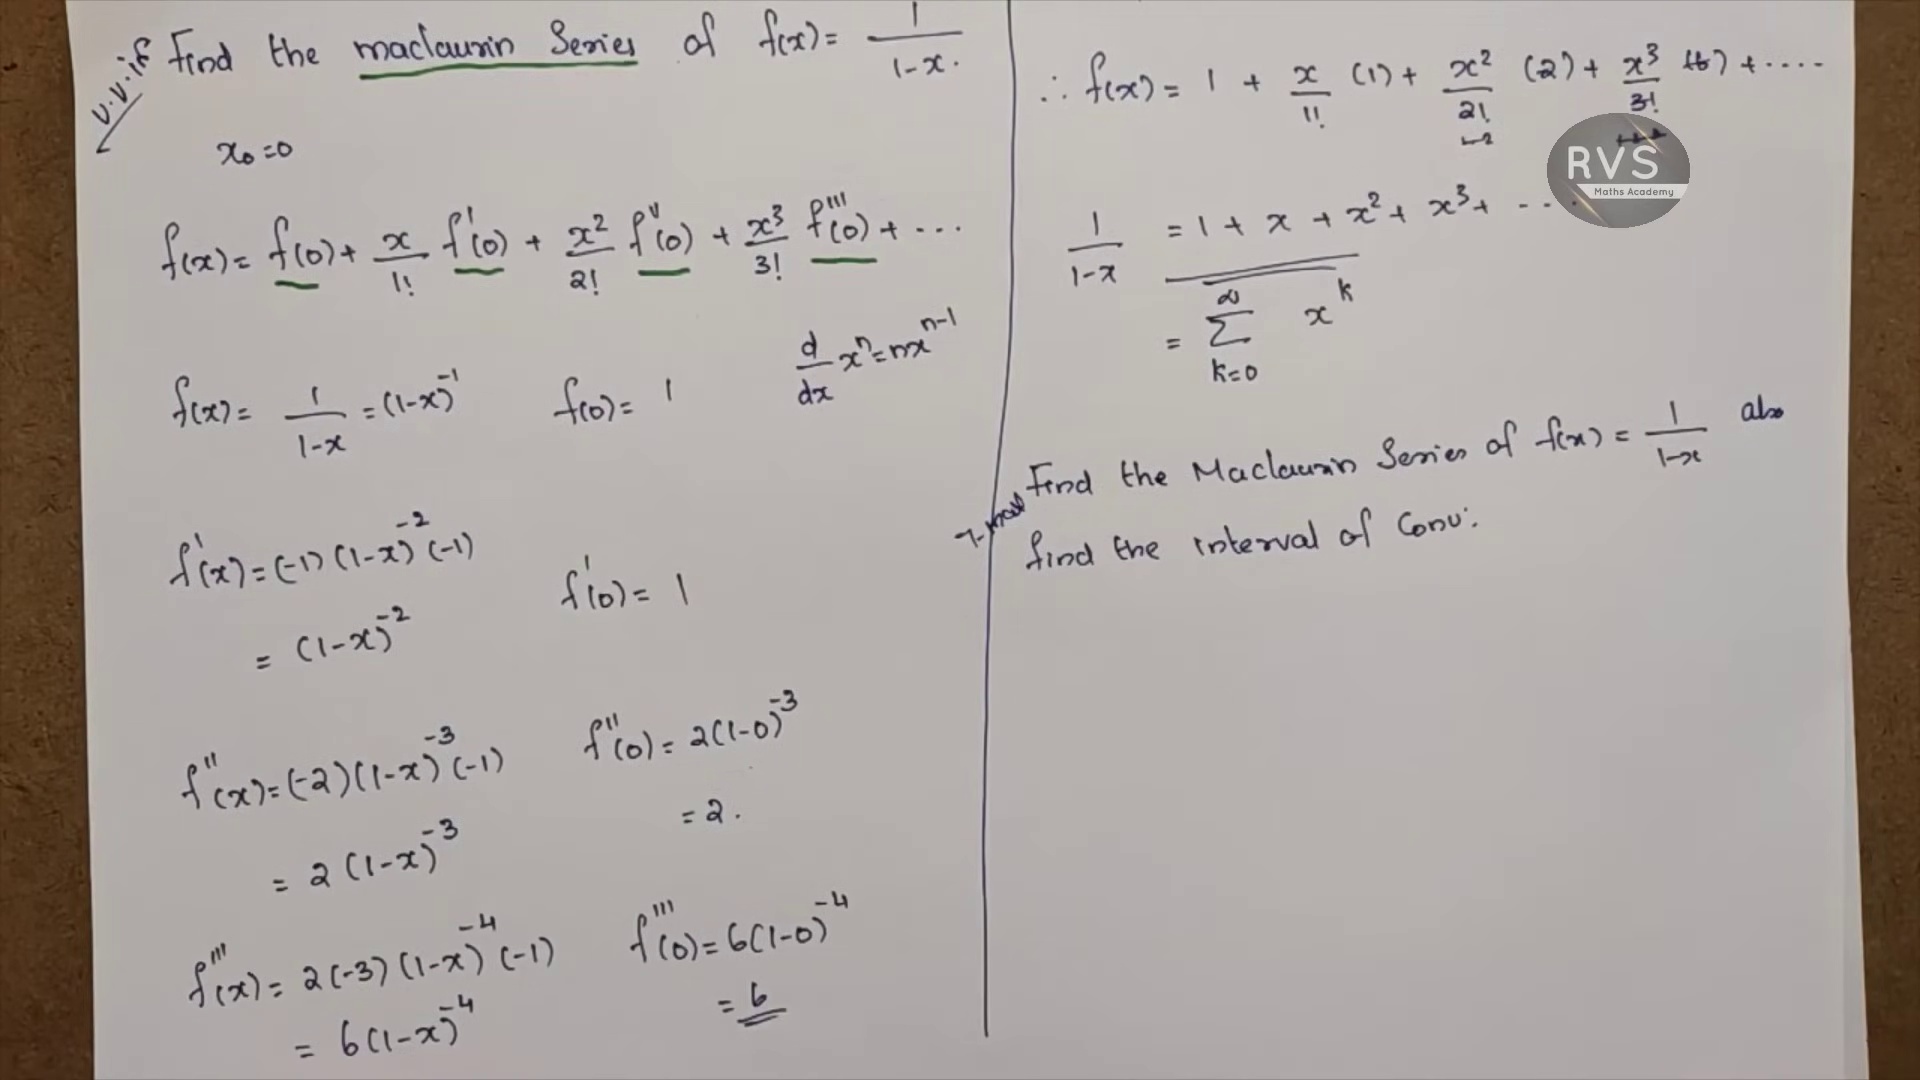 v.v.if
Find the maclaurin Series of f(x) = 1/(1-x).
x₀ = 0
f(x) = f(0) + x/1! f'(0) + x²/2! f''(0) + x³/3! f'''(0) + ...
d/dx xⁿ = nxⁿ⁻¹
f(x) = 1/(1-x) = (1-x)⁻¹ f(0) = 1
f'(x) = (-1)(1-x)⁻²(-1)
= (1-x)⁻² f'(0) = 1
f''(x) = (-2)(1-x)⁻³(-1) f''(0) = 2(1-0)⁻³
= 2(1-x)⁻³ = 2.
f'''(x) = 2(-3)(1-x)⁻⁴(-1) f'''(0) = 6(1-0)⁻⁴
= 6(1-x)⁻⁴ = 6
∴ f(x) = 1 + x/1! (1) + x²/2! (2) + x³/3! (6) + ....
RVS
Maths Academy
1/(1-x) = 1 + x + x² + x³ + ....
= ∞ Σ k=0 xᵏ
Find the Maclaurin Series of f(x) = 1/(1-x) also
find the interval of Conv: